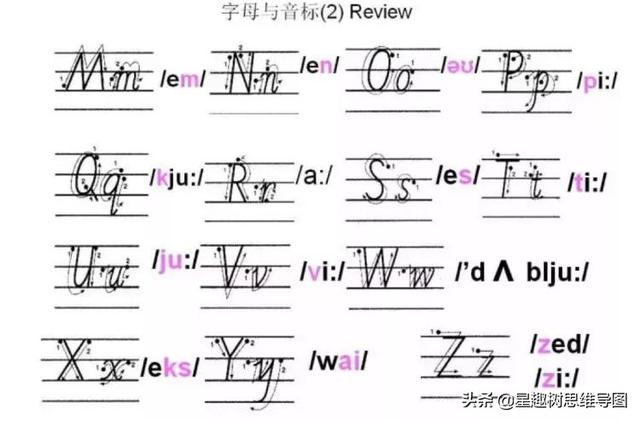 字母与音标(2) Review
Mm /em/ Nn /en/ Oo /əʊ/ Pp /pi:/
Qq /kju:/ Rr /a:/ Ss /es/ Tt /ti:/
Uu /ju:/ Vv /vi:/ Ww /'dΛblju:/
Xx /eks/ Yy /wai/ Zz /zed/
/zi:/
头条@星趣树思维导图